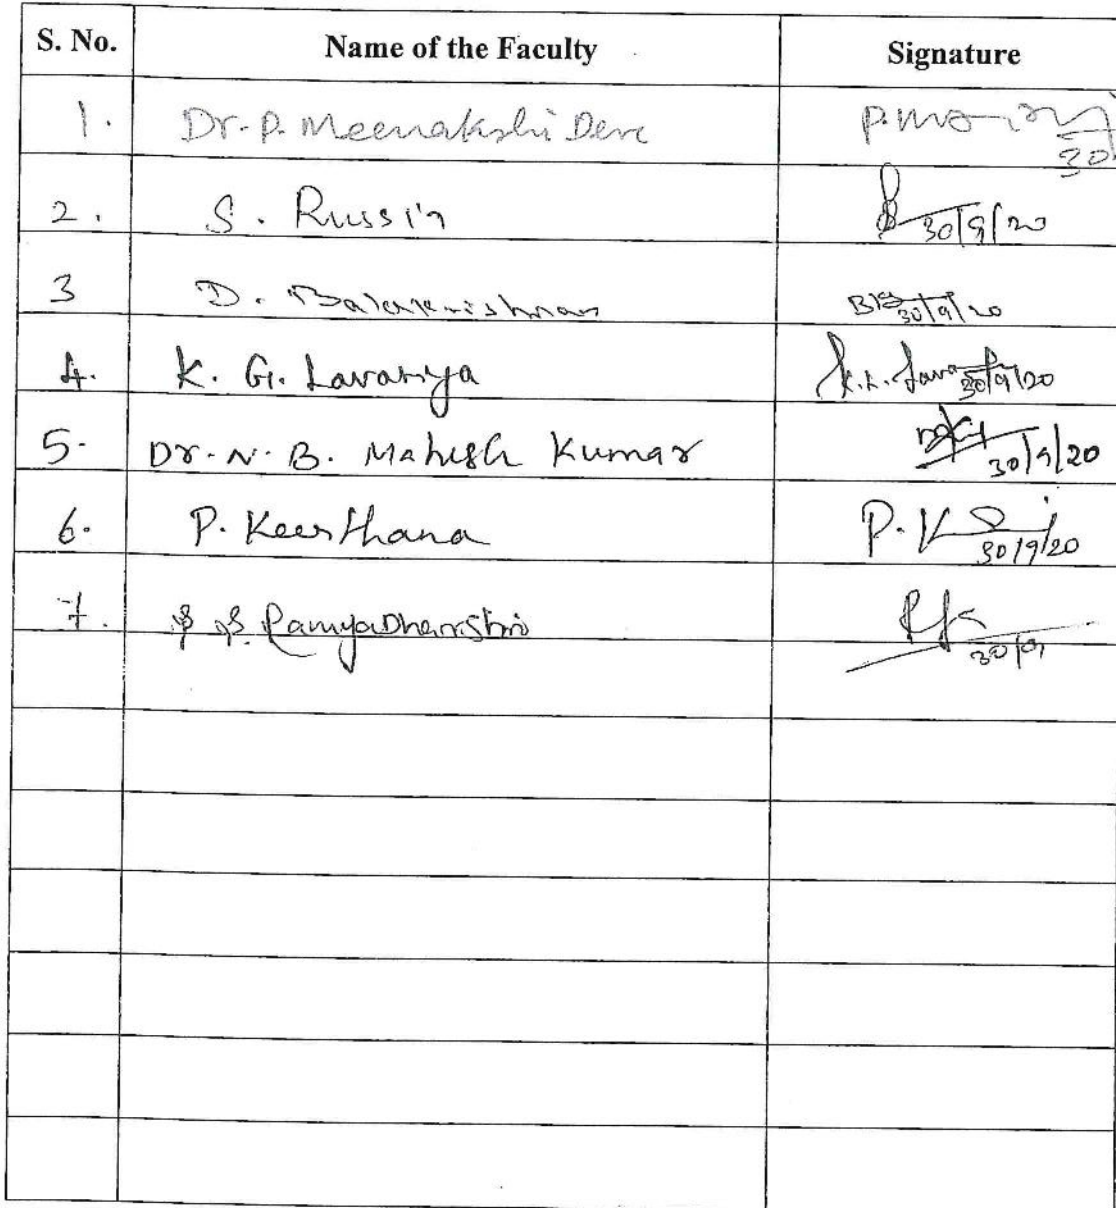 S. No. Name of the Faculty Signature
1. Dr. P. Meenakshi Devi
2. S. Russia 30/9/20
3 D. Balakrishnan 30/9/20
4. K. G. Lavanya 30/9/20
5. Dr. N. B. Mahesh Kumar 30/9/20
6. P. Keerthana P. K 30/9/20
7. S. RamyaDharshini 30/9